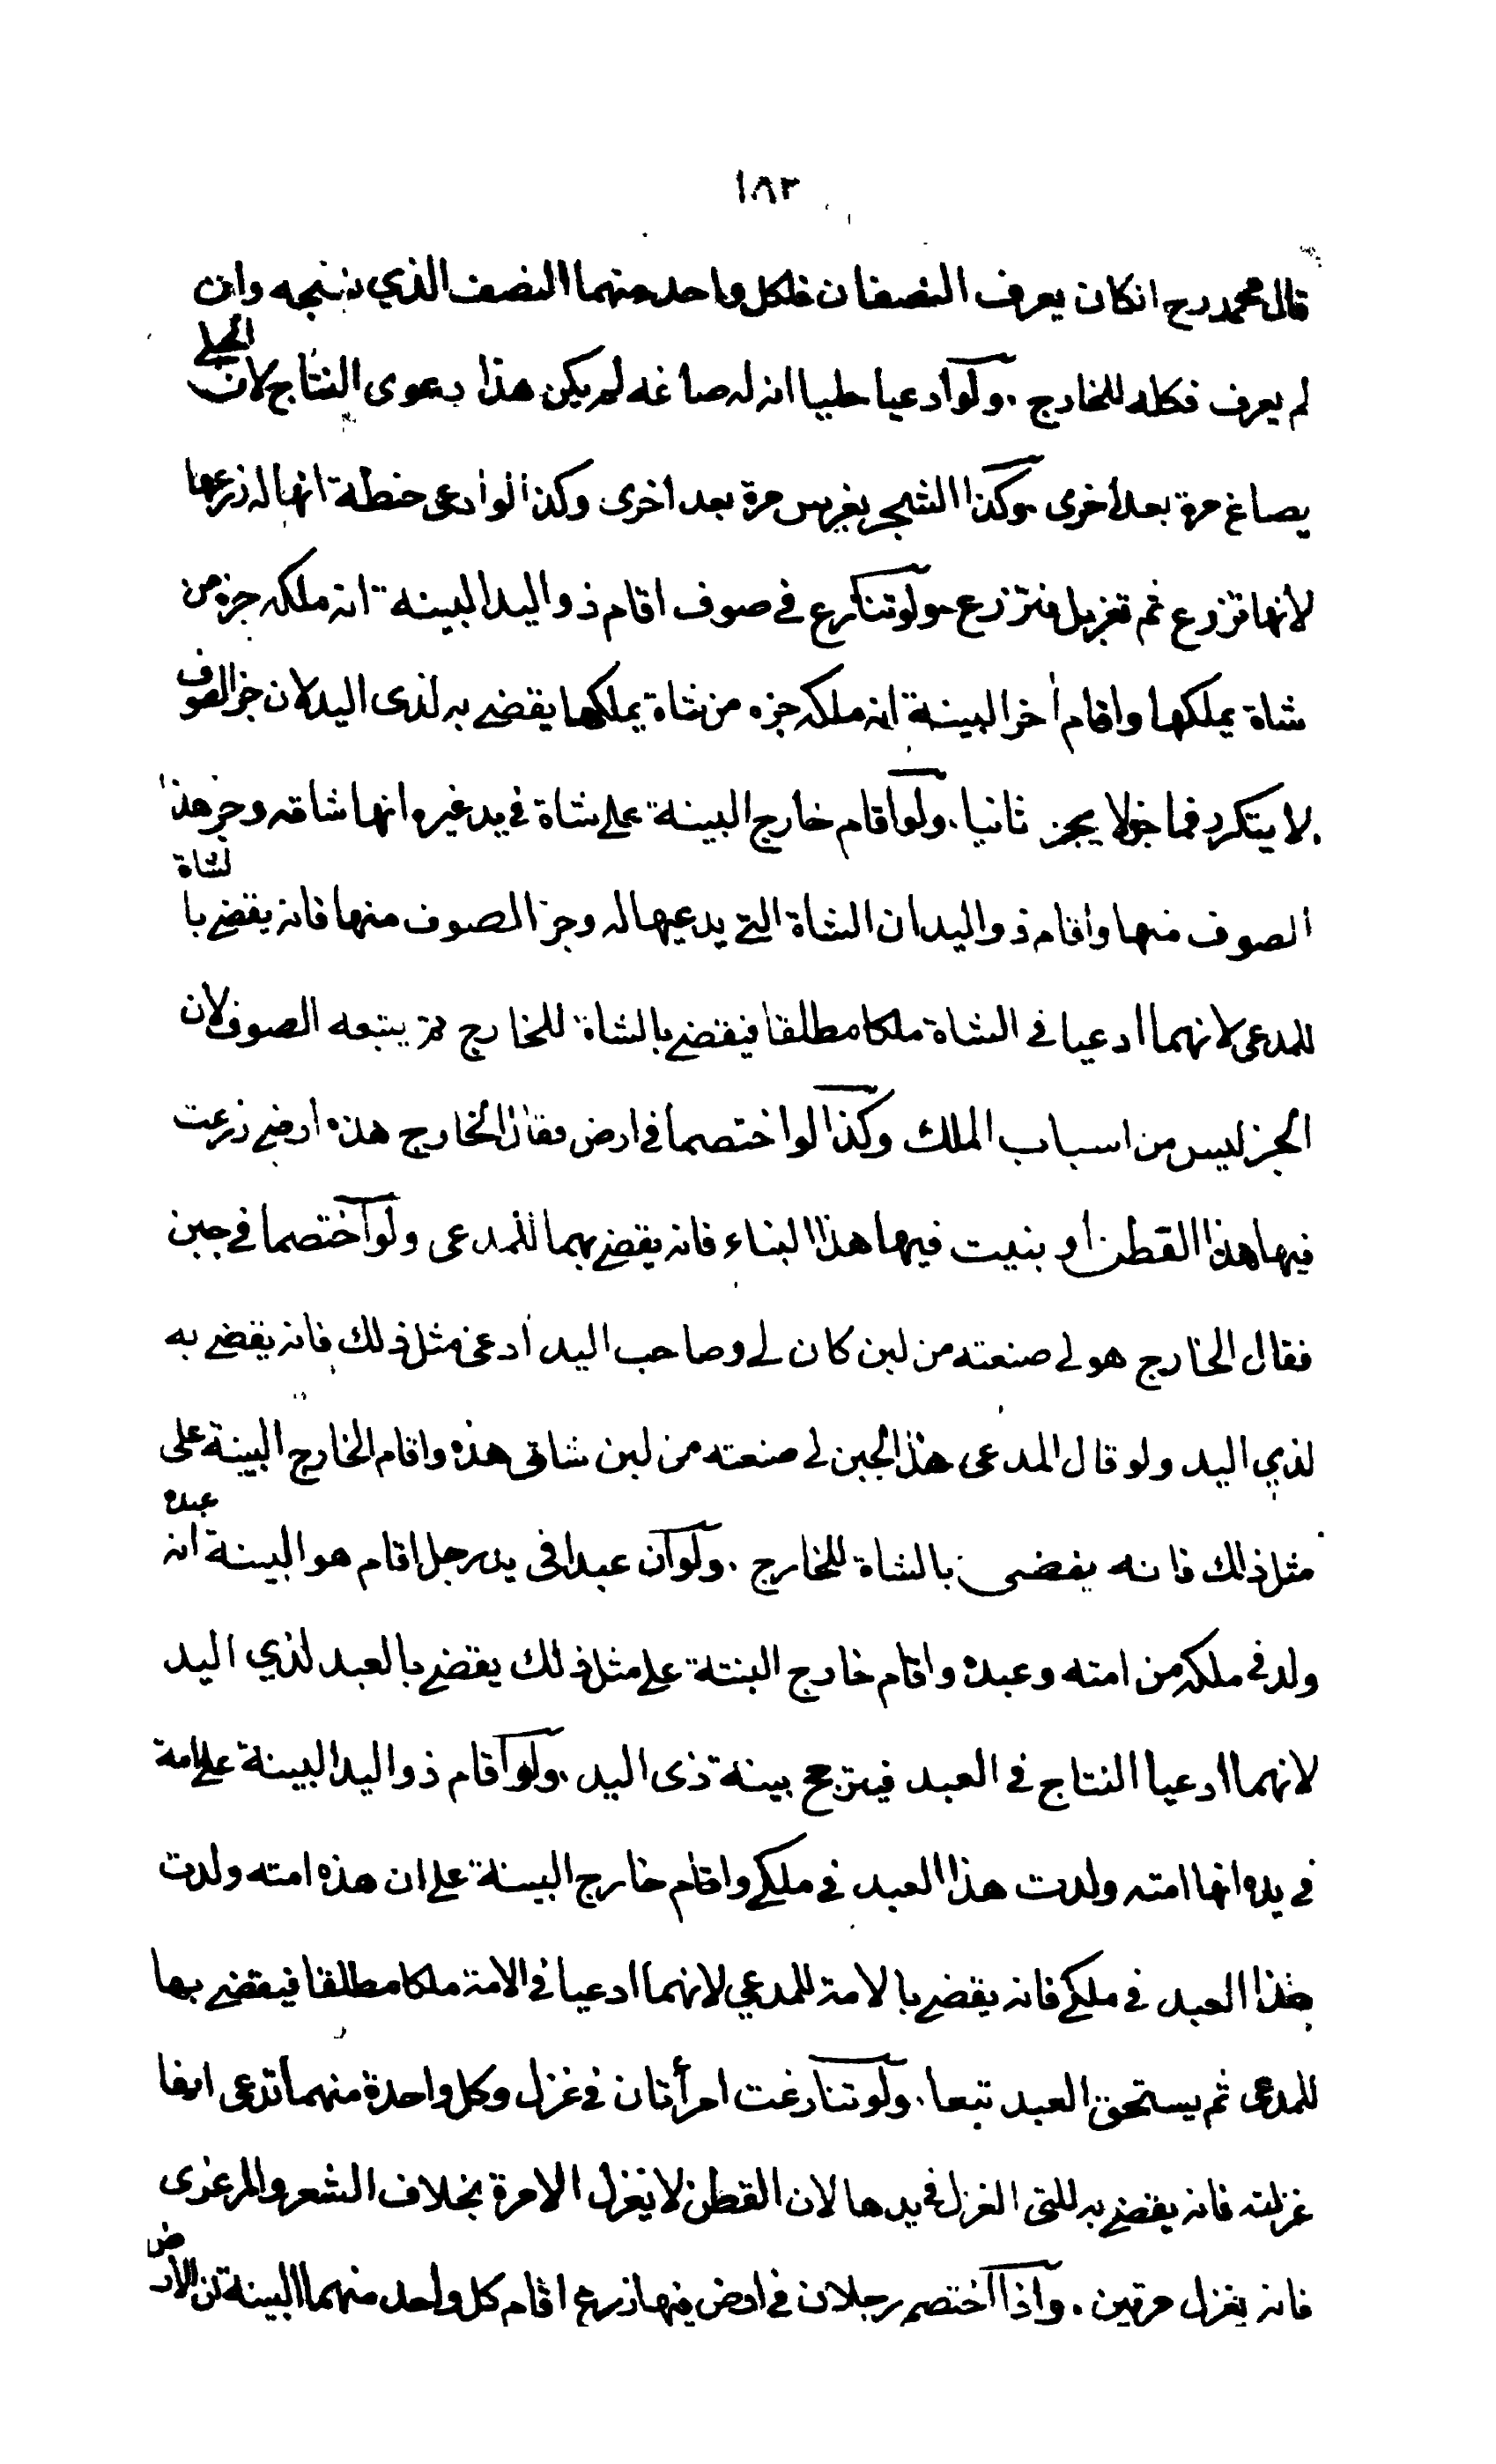 ١٨٣
قال محمد رح انكان يعرف النصفان فلكل واحد منهما النصف الذي نسجه وان
لم يعرف فكله للخارج . ولو ادعيا حليا انه له صاغه لم يكن هذا دعوى النتاج لان الحلي
يصاغ مرة بعد أخرى . وكذا الشجر يغرس مرة بعد اخرى وكذا لو ادعى حنطة انها له زرعها
لانها تزرع ثم تغربل فتزرع ولو تنازع في صوف اقام ذو اليد البينة انه ملكه جزه من
شاة يملكها واقام أخر البينة انه ملكه جزه من شاة يملكها يقضے به لذى اليد لان جز الصوف
لا يتكرر فما جز لا يجز ثانيا . ولو اقام خارج البينة علے شاة في يد غيره انها شاته وجز هذا
الصوف منها واقام ذو اليد ان الشاة التي يدعيها له وجز الصوف منها فانه يقضے بالشاة
للمدعى لانهما ادعيا في الشاة ملكا مطلقا فيقضے بالشاة للخارج ثم يتبعه الصوف لان
الجز ليس من اسباب الملك وكذا لو اختصما في ارض فقال الخارج هذه ارضے زرعت
فيها هذا القطن او بنيت فيها هذا البناء فانه يقضے بهما للمدعى ولو اختصما في جبن
فقال الخارج هو لي صنعته من لبن كان لے وصاحب اليد ادعى مثل ذلك فانه يقضے به
لذي اليد ولو قال المدعى هذا الجبن لے صنعته من لبن شاتى هذه واقام الخارج البينة على
مثل ذلك فانه يفضى بالشاة للخارج . ولو ان عبدا فى يد رجل اقام هو البينة انه عبده
ولد في ملكه من امته وعبده واقام خارج البنتة علے مثل ذلك يقضے بالعبد لذي اليد
لانهما ادعيا النتاج في العبد فيترجح بينة ذى اليد . ولو اقام ذو اليد البينة علے امة
في يده انها امته ولدت هذا العبد في ملكے واقام خارج البينة علے ان هذه امته ولدت
هذا العبد في ملكے فانه يقضے بالامة للمدعي لانهما ادعيا في الامة ملكا مطلقا فيقضے بها
للمدعى ثم يستحق العبد تبعا . ولو تنازعت امرأتان في غزل وكل واحدة منهما تدعى انها
غزلته فانه يقضے به للتى الغزل في يدها لان القطن لا يغزل الا مرة بخلاف الشعر والمرعزى
فانه يغزل مرتين . واذا اختصم رجلان في ارض فيها زرع اقام كل واحد منهما البينة ان الارض